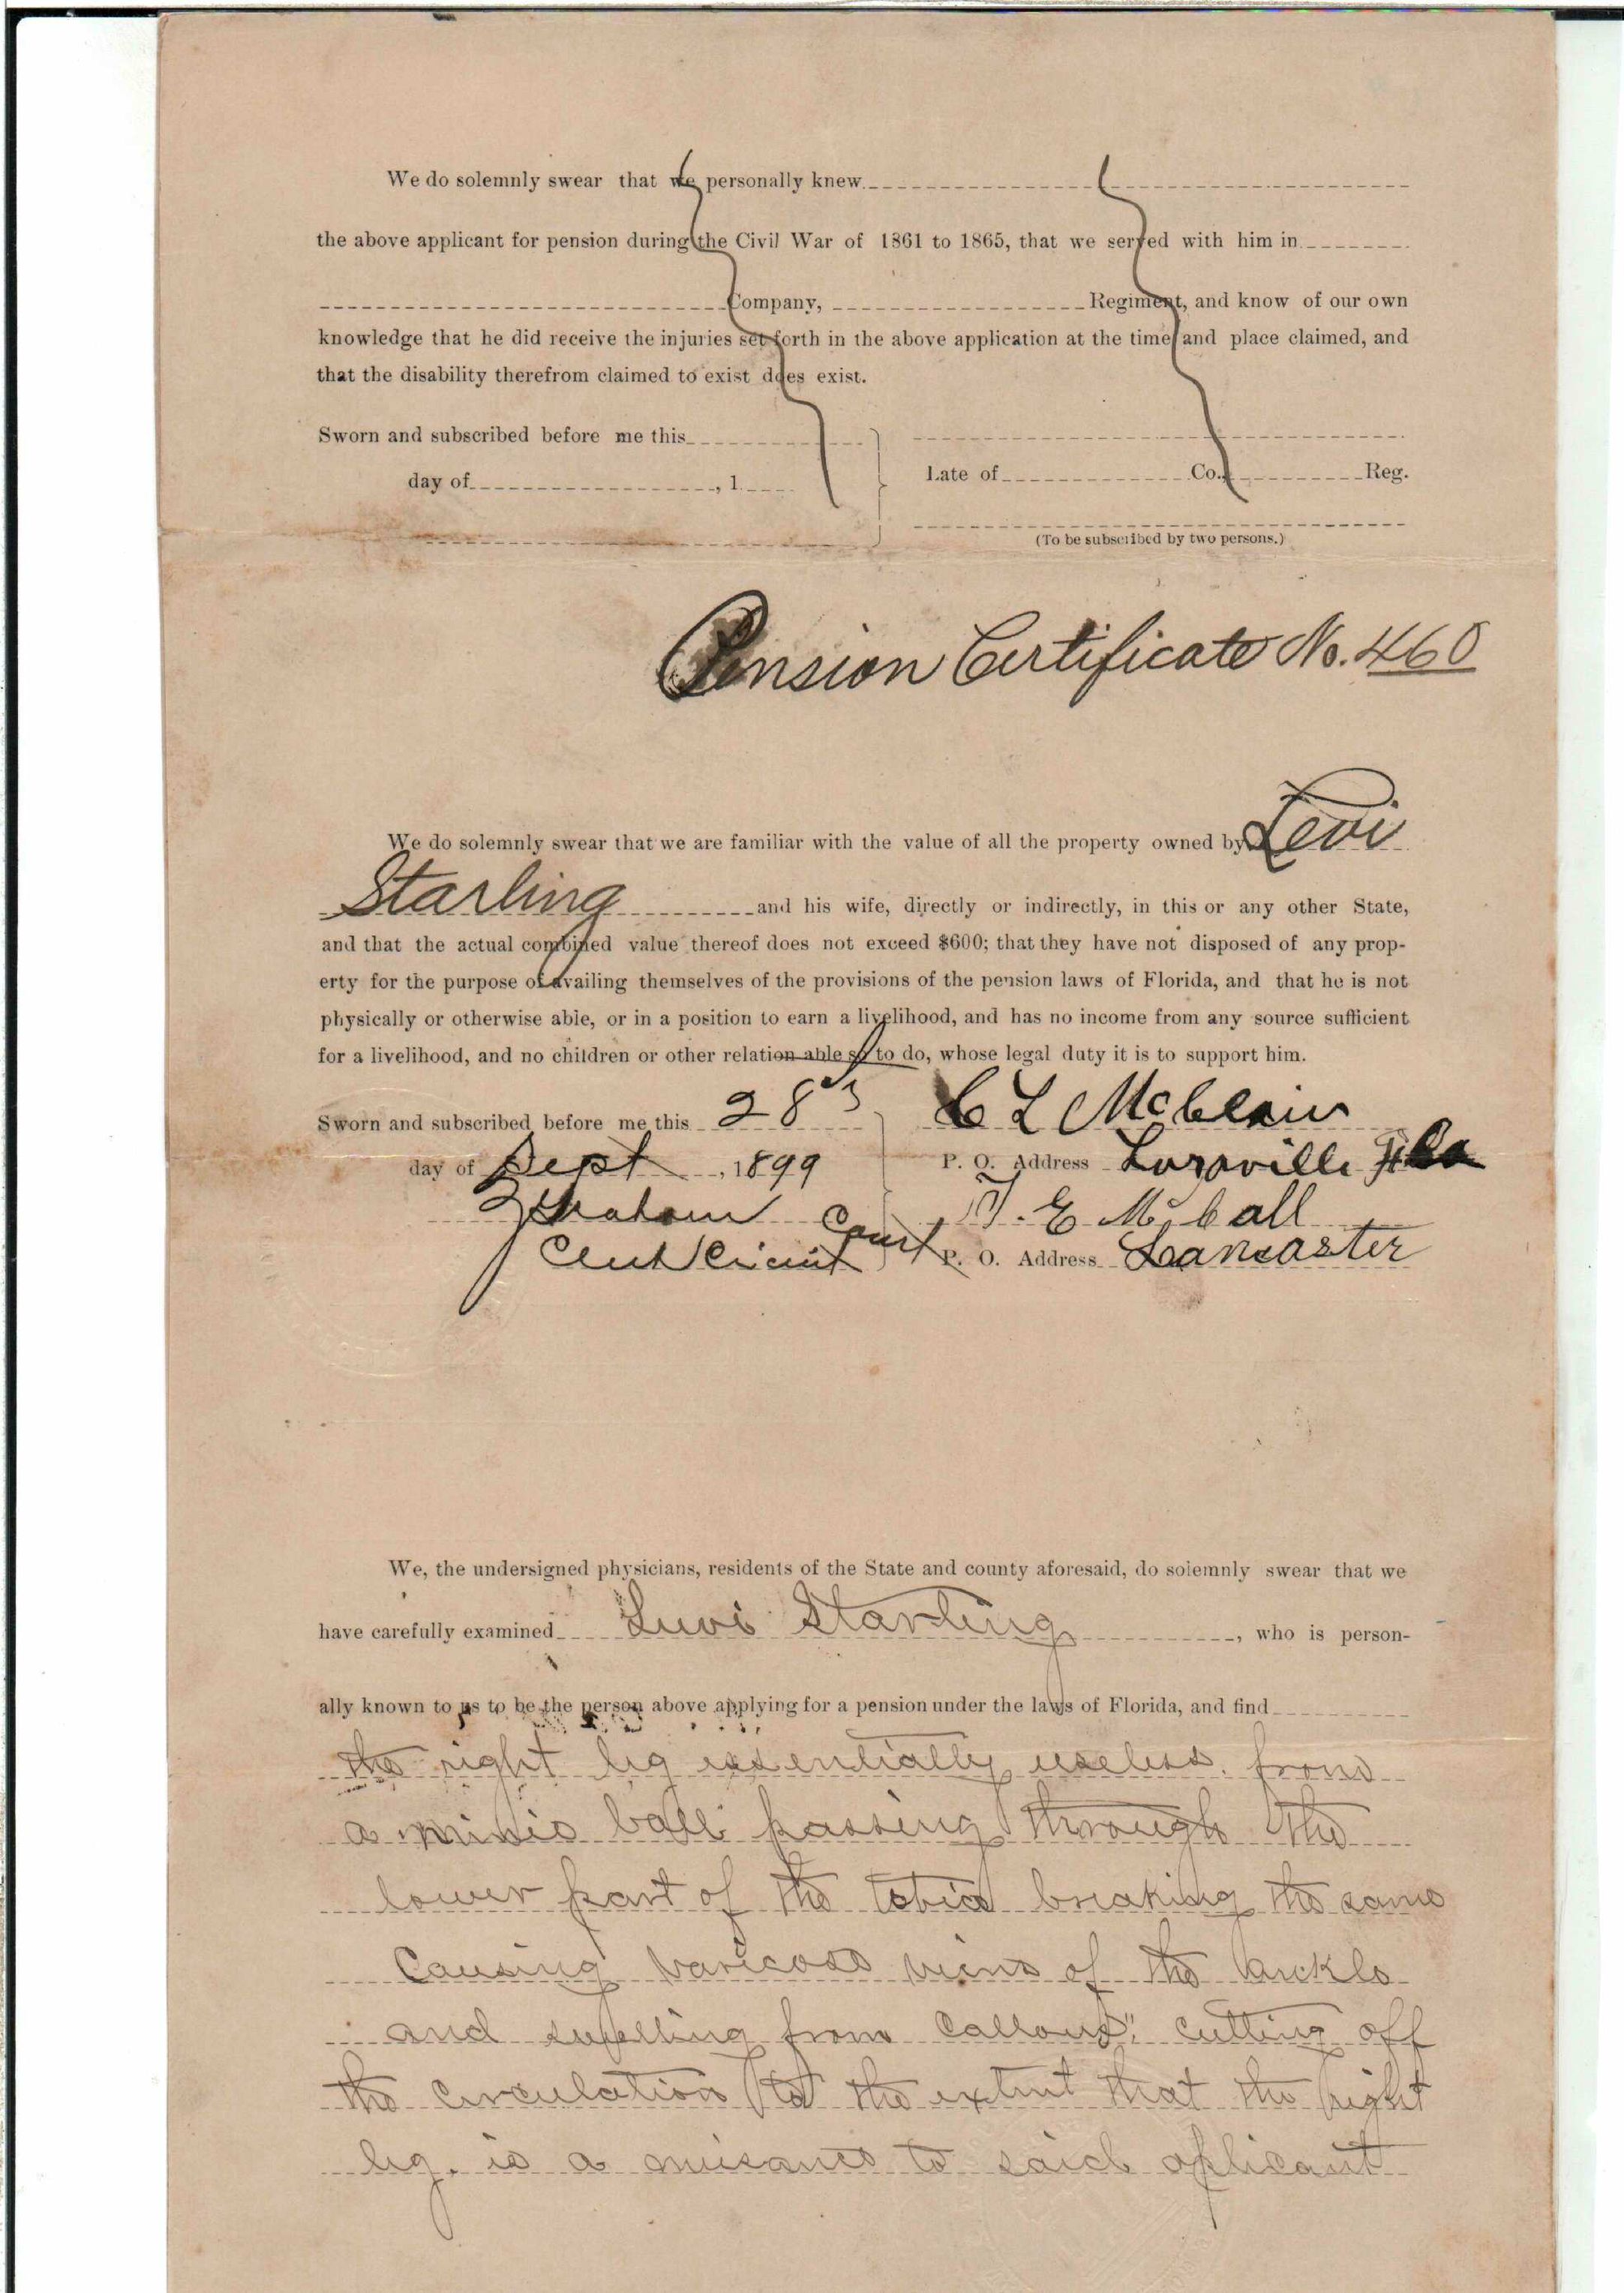 We do solemnly swear that we personally knew
the above applicant for pension during the Civil War of 1861 to 1865, that we served with him in
Company, Regiment, and know of our own
knowledge that he did receive the injuries set forth in the above application at the time and place claimed, and
that the disability therefrom claimed to exist does exist.
Sworn and subscribed before me this
day of , 1
Late of Co., Reg.
(To be subscribed by two persons.)
Pension Certificate No. 460
We do solemnly swear that we are familiar with the value of all the property owned by Levi
Starling and his wife, directly or indirectly, in this or any other State,
and that the actual combined value thereof does not exceed $600; that they have not disposed of any prop-
erty for the purpose of availing themselves of the provisions of the pension laws of Florida, and that he is not
physically or otherwise able, or in a position to earn a livelihood, and has no income from any source sufficient
for a livelihood, and no children or other relation able so to do, whose legal duty it is to support him.
Sworn and subscribed before me this 28
day of Sept , 1899
Graham
Clerk Circuit Court
C L McClain
P. O. Address Luraville Fla
T. E McCall
P. O. Address Lancaster
We, the undersigned physicians, residents of the State and county aforesaid, do solemnly swear that we
have carefully examined Luvi Starling , who is person-
ally known to us to be the person above applying for a pension under the laws of Florida, and find
the right leg essentially useless. from
a minie ball passing through the
lower part of the tobia breaking the same
Causing varicose viens of the ankle
and swelling from callous" cutting off
the circulation to the extent that the right
leg. is a nuisance to said aplicant